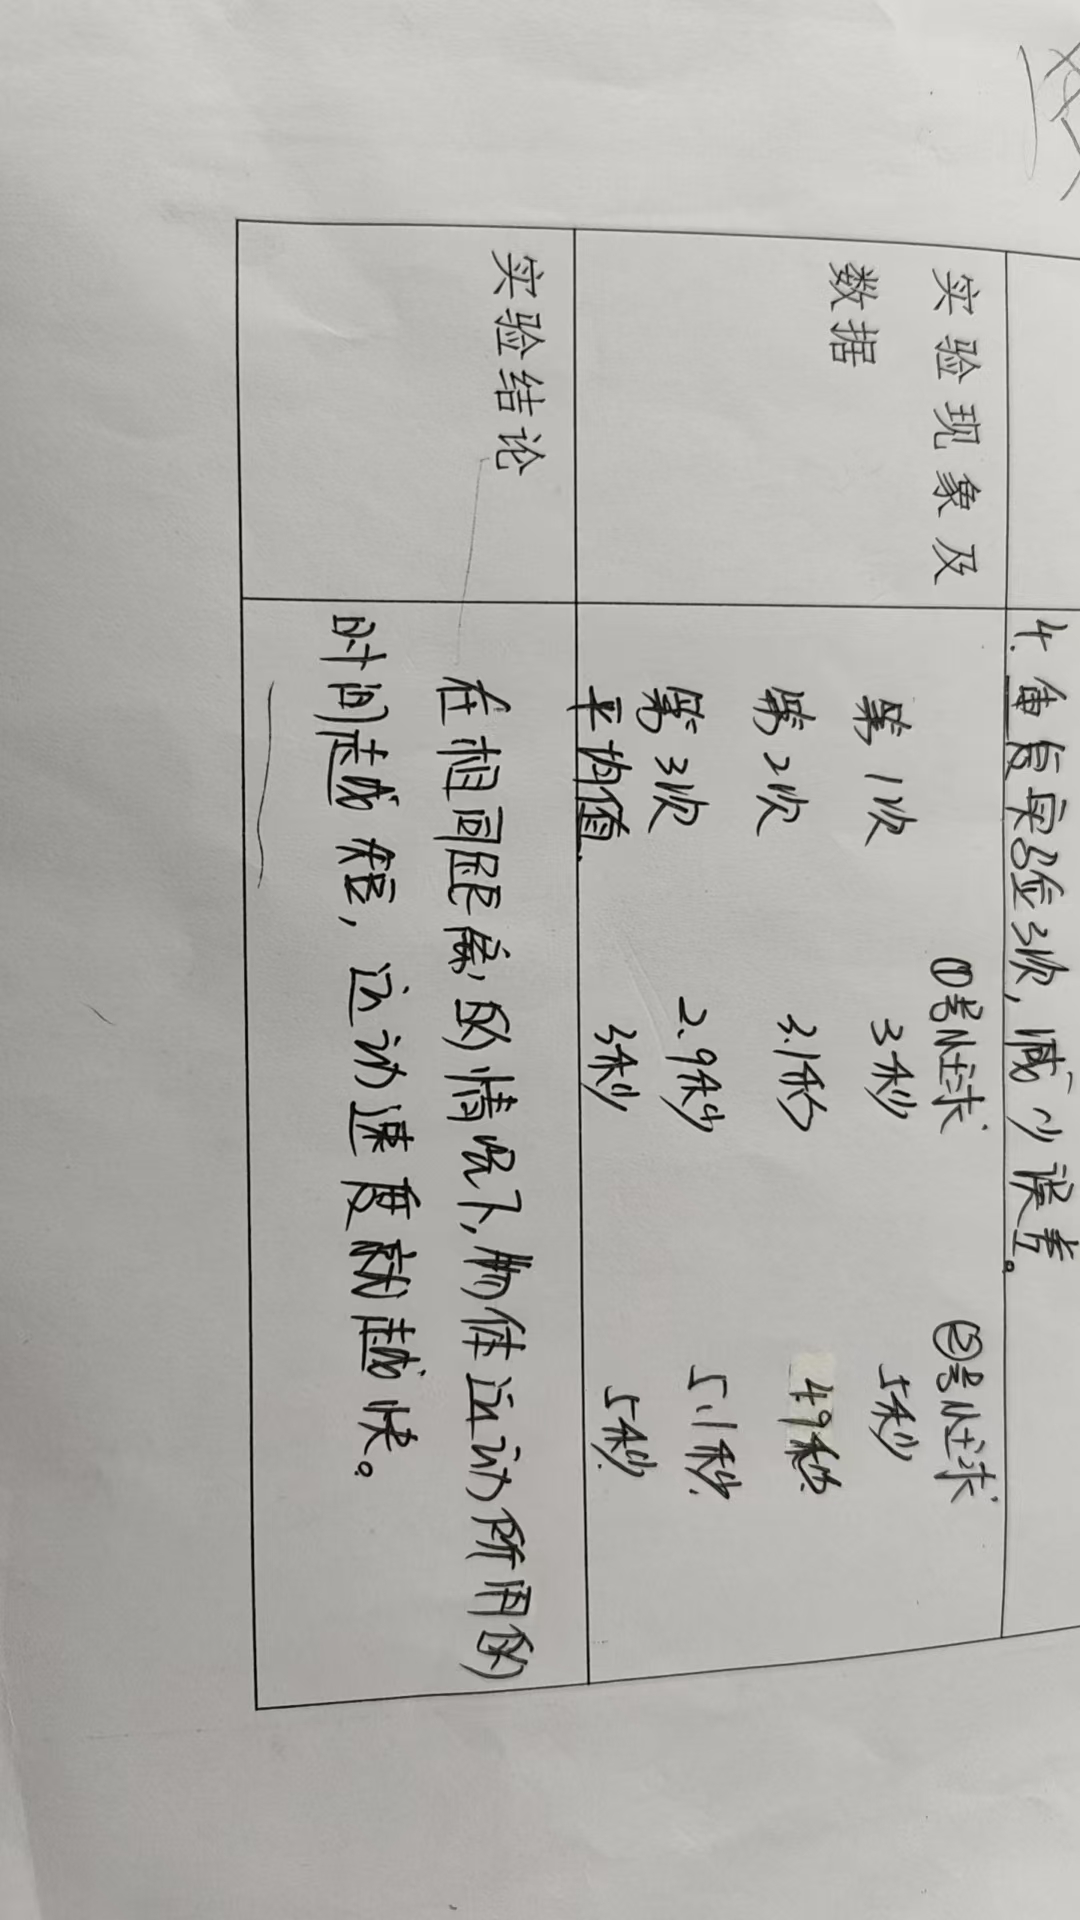 4. 重复实验3次,减少误差。
实验现象及
数据
①号小球 ②号小球
第1次 3秒 5秒
第2次 3.1秒 4.9秒
第3次 2.9秒 5.1秒
平均值 3秒 5秒
实验结论
在相同距离的情况下,物体运动所用的
时间越短,运动速度就越快。